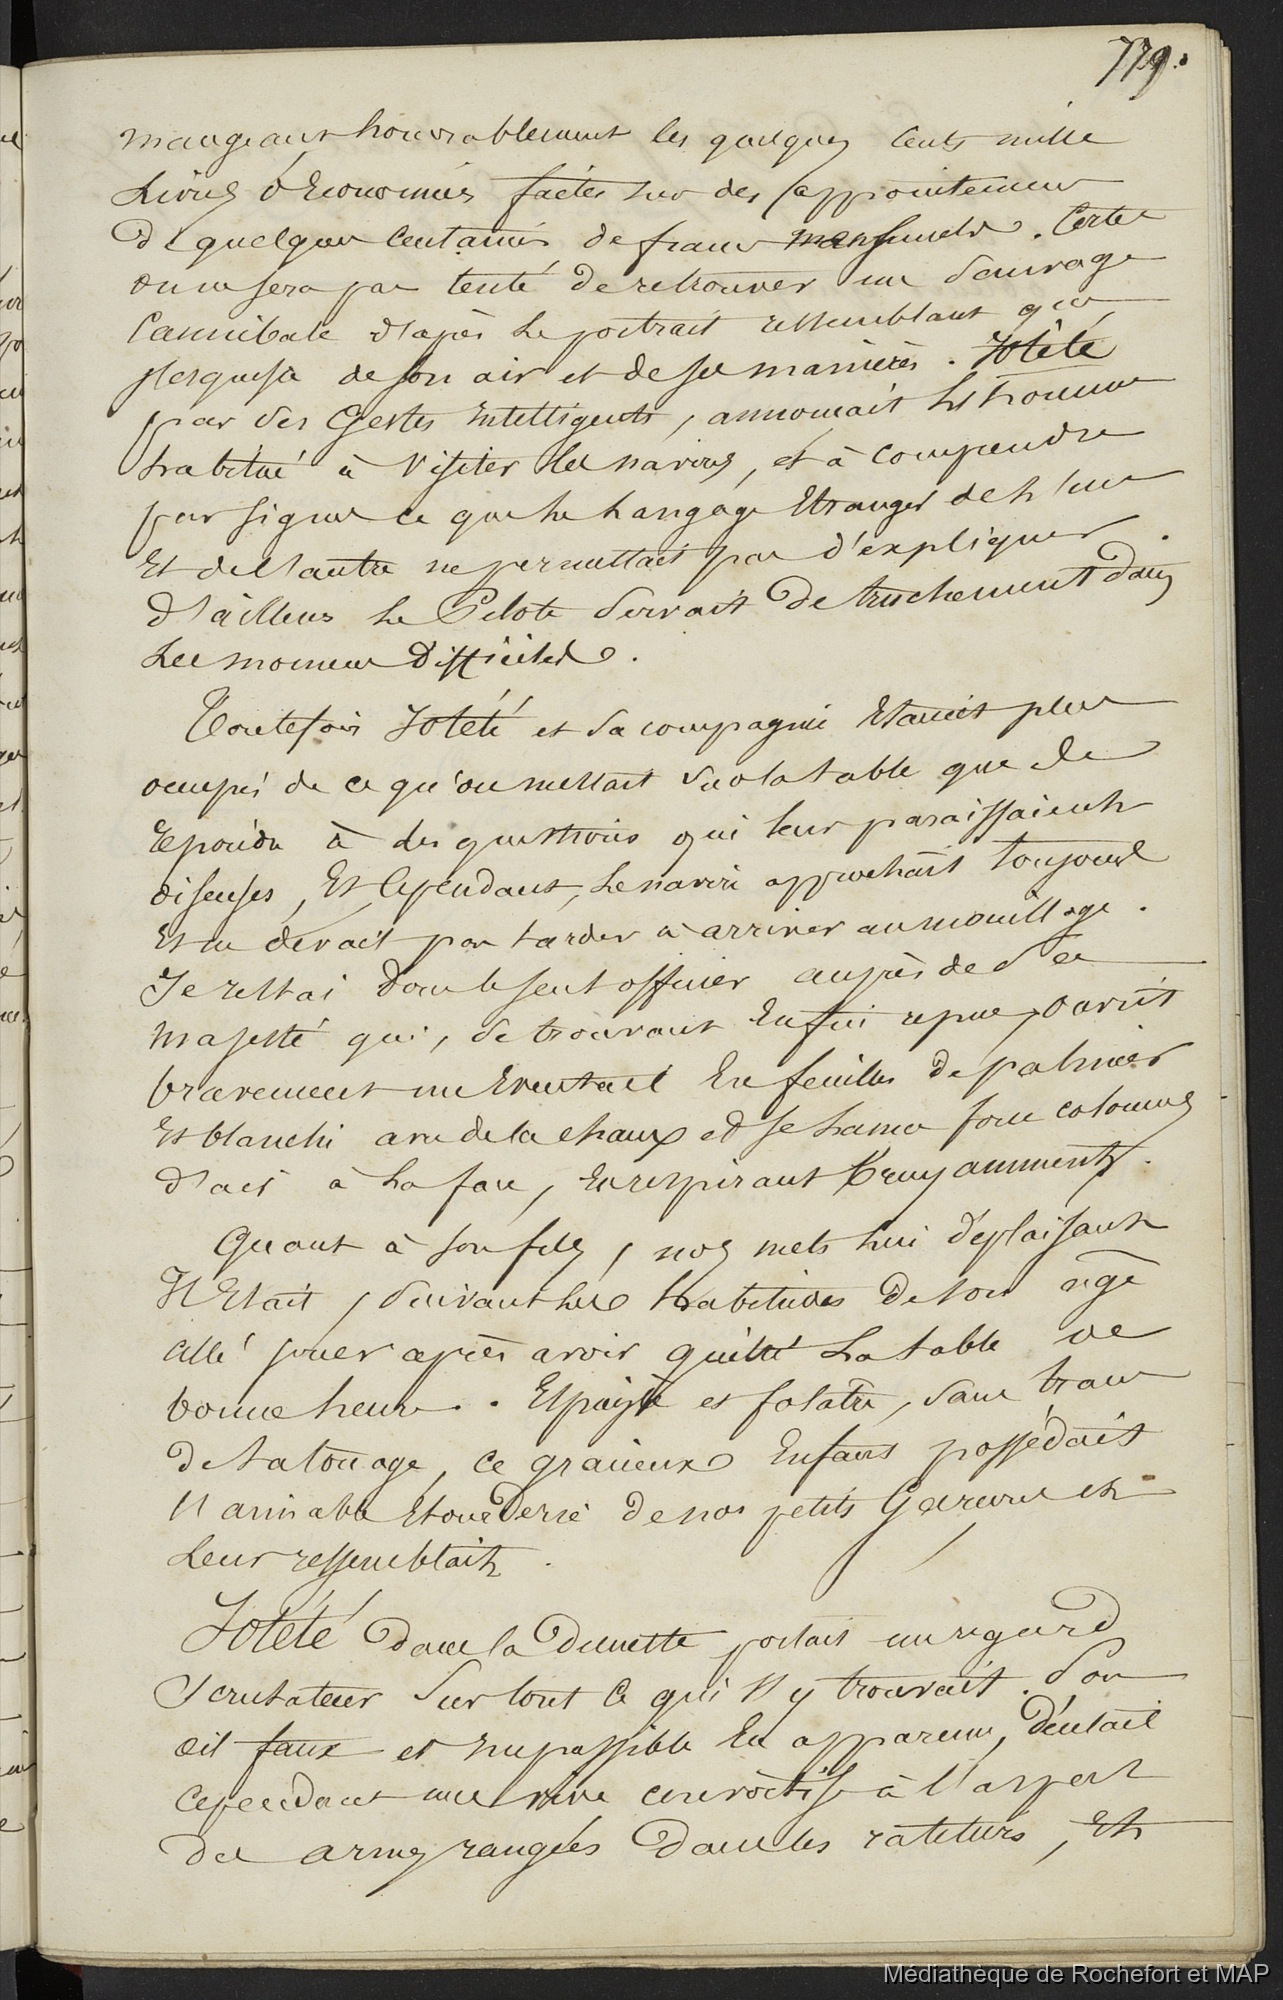 779.
mangeant honorablement les quelques cents mille
Livres d'Economies faites sur des appointemens
De quelques Centaines de francs mensuels. Certes
on ne sera pas tenté de retrouver un Sauvage
Cannibale d'après le portrait ressemblant que
j'esquisse de son air et de ses manières. Iotété
par des Gestes Intelligents, annonçait l'homme
habitué à visiter les navires, et à comprendre
par signes ce que le langage Etranger de l'un
Et de l'autre ne permettait pas d'expliquer.
D'ailleurs le Pilote Servait De truchement dans
Les momens Difficiles.
Toutefois Iotété et Sa compagnie Etaient plus
occupés de ce qu'on mettait Sur la table que de
Répondre à des questions qui leur paraissaient
oiseuses, Et Cependant, le navire approchait toujours
Et ne devait pas tarder à arriver au mouillage.
Je restai Donc le seul officier auprès de Sa
majesté qui, se trouvant Enfin repue, ouvrit
bravement un Eventail En feuilles De palmier
Et blanchi avec de la chaux et se lança force colonnes
d'air à la face, En respirant bruyamment.
Quant à son fils, nos mets lui déplaisant
Il Etait, Suivant les habitudes De son âge
allé jouer après avoir quitté la table de
bonne heure. Espiègle et folâtre, Sans traces
De tatouage, ce gracieux Enfant possédait
l'aimable Etourderie De nos petits Garçons et
Leur ressemblait.
Iotété Dans la Dunette portait un regard
Scrutateur Sur tout Ce qui s'y trouvait. Son
œil faux et impassible En apparence, décelait
Cependant une vive convoitise à l'aspect
Des armes rangées Dans les rateliers, Et
Médiathèque de Rochefort et MAP